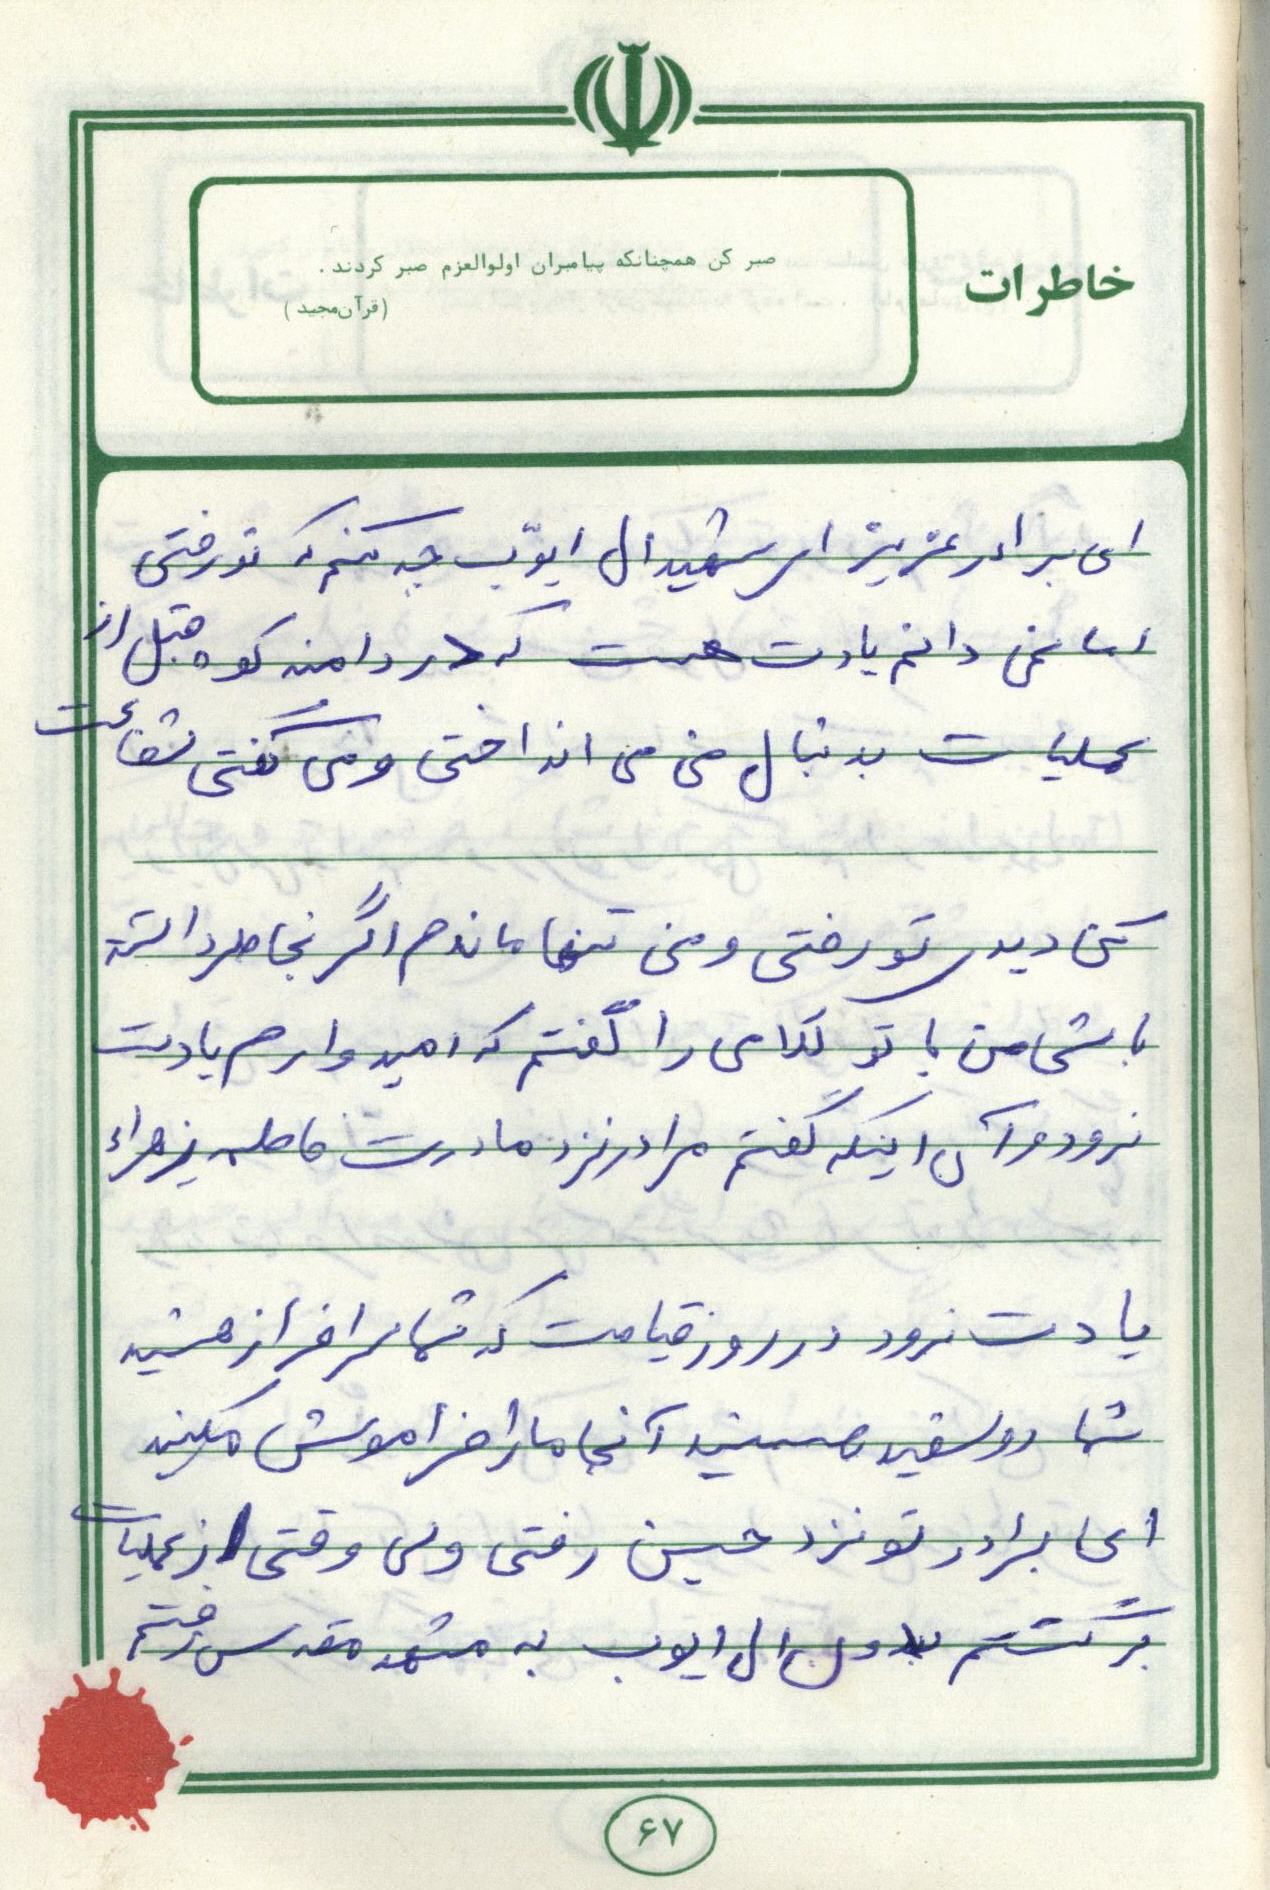 خاطرات
صبر کن همچنانکه پیامبران اولوالعزم صبر کردند .
(قرآن مجید)
ای برادر عزیز ای شهید ال ایوّب چه کنم که تو رفتی
اما نمی دانم یادت هست که در دامنه کوه قبل از
عملیات بدنبال من می انداختی و می گفتی شفاعت
کن دیدی تو رفتی و من تنها ماندم اگر بخاطر داشته
باشی من با تو کلامی را گفتم که امیدوارم یادت
نرود و آن اینکه گفتم مرا در نزد مادرت فاطمه زهراء
یادت نرود در روز قیامت که شما سرافراز هستید
شما روسفید هستید آنجا ما را فراموش مکنید
ای برادر تو نزد حسین رفتی ولی وقتی از عملیات
برگشتم بدون ال ایوب به مشهد مقدس رفتم
۶۷